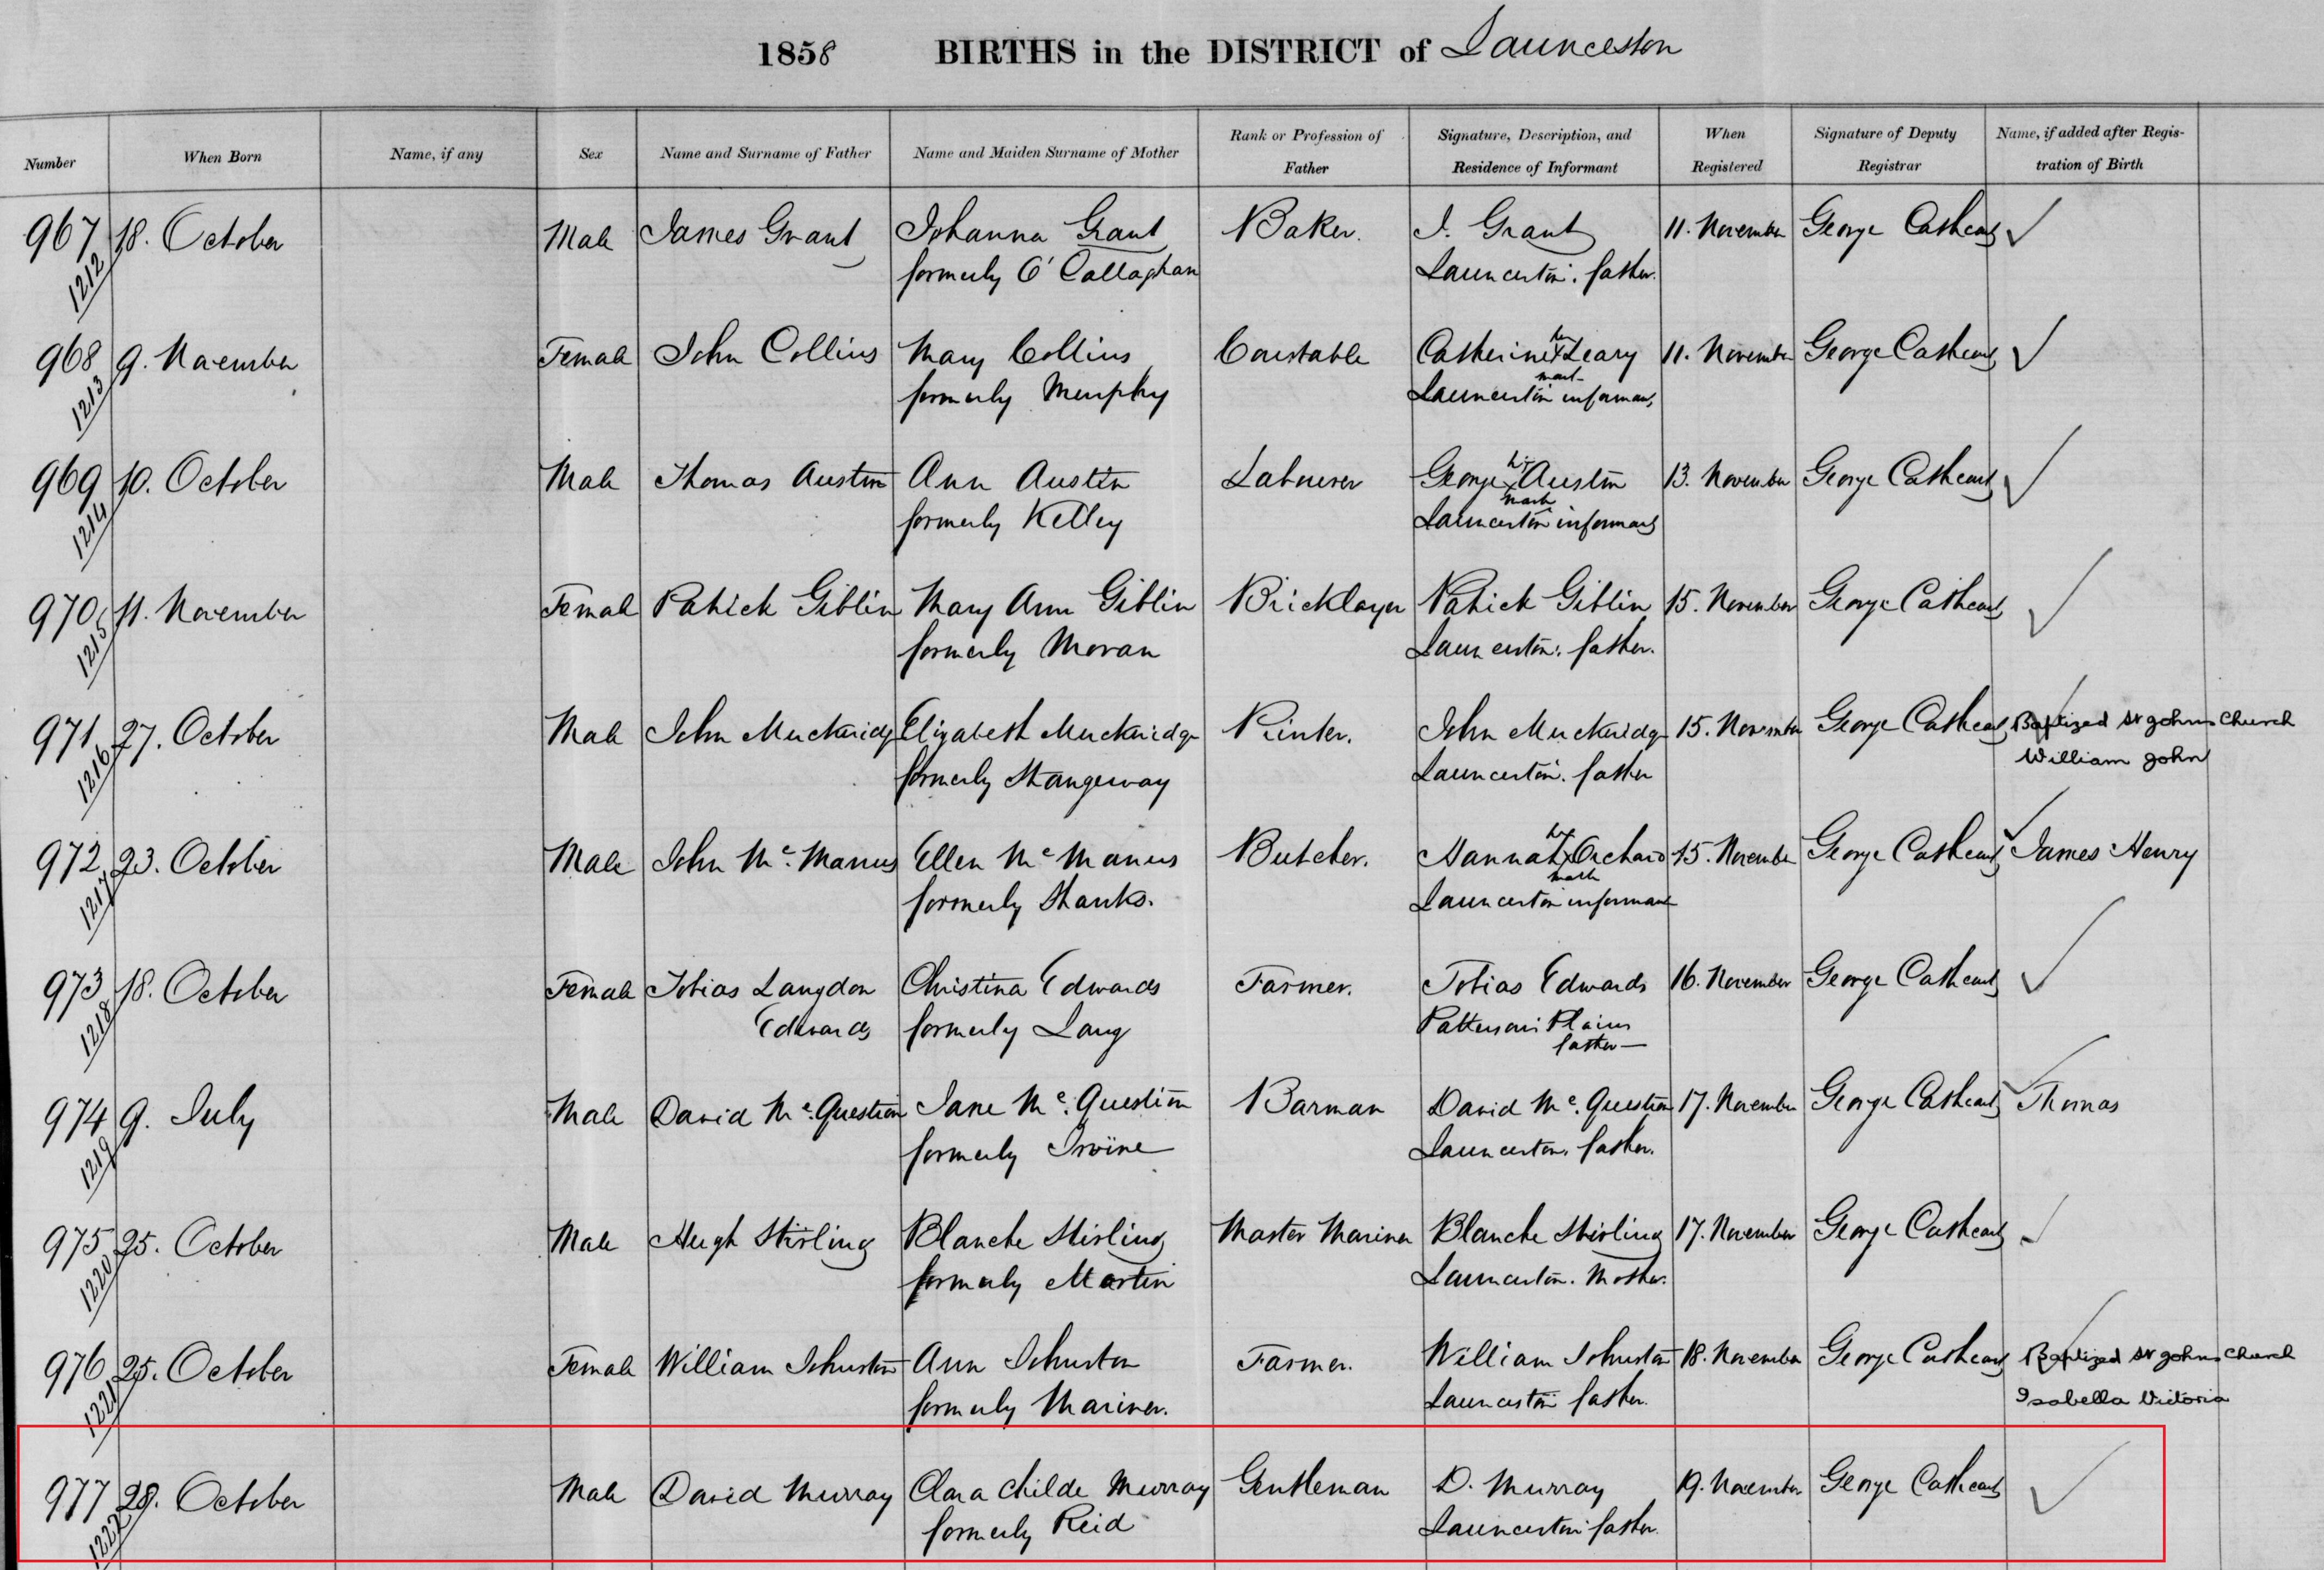 1858 BIRTHS in the DISTRICT of Launceston
Number When Born Name, if any Sex Name and Surname of Father Name and Maiden Surname of Mother Rank or Profession of Father Signature, Description, and Residence of Informant When Registered Signature of Deputy Registrar Name, if added after Registration of Birth
967 18. October Male James Grant Johanna Grant Baker. J. Grant 11. November George Cathcart ✓
1212 formerly O'Callaghan Launceston. father.
968 9. November Female John Collins Mary Collins Constable Catherine her X Leary 11. November George Cathcart ✓
1213 formerly Murphy mark Launceston informant
969 10. October Male Thomas Austin Ann Austin Labourer George his X Austin 13. November George Cathcart ✓
1214 formerly Kelley mark Launceston informant
970 11. November Female Patrick Giblin Mary Ann Giblin Bricklayer Patrick Giblin 15. November George Cathcart ✓
1215 formerly Moran Launceston. father.
971 27. October Male John Muckridge Elizabeth Muckridge Printer. John Muckridge 15. November George Cathcart ✓ Baptized St Johns Church
1216 formerly Strangeway Launceston. father William John
972 23. October Male John Mc.Manus Ellen McManus Butcher. Hannah her X Orchard 15. November George Cathcart ✓ James Henry
1217 formerly Shanks. mark Launceston informant
973 18. October Female Tobias Langdon Christina Edwards Farmer. Tobias Edwards 16. November George Cathcart ✓
1218 Edwards formerly Lang Pattersons Plains
father
974 9. July Male David Mc.Question Jane Mc.Question Barman David Mc.Question 17. November George Cathcart ✓ Thomas
1219 formerly Irvine Launceston. father.
975 25. October Male Hugh Stirling Blanche Stirling Master Mariner Blanche Stirling 17. November George Cathcart ✓
1220 formerly Martin Launceston. Mother.
976 25. October Female William Johnston Ann Johnston Farmer. William Johnston 18. November George Cathcart ✓ Baptized St Johns Church
1221 formerly Mariner. Launceston father. Isabella Victoria
977 28. October Male David Murray Clara Childe Murray Gentleman D. Murray 19. November George Cathcart ✓
1222 formerly Reid Launceston father.